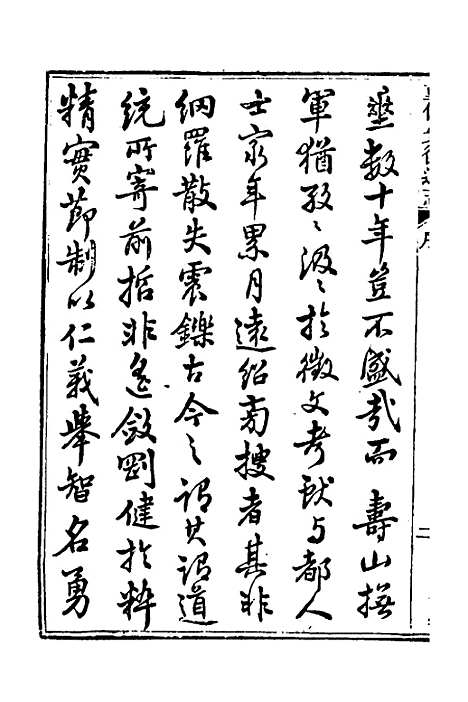 壘數十年豈不盛哉而壽山撫
軍猶孜〻汲〻於徵文考獻与都人
士家年累月遠紹旁搜者其非
網羅散失震鑠古今之謂其謂道
統所寄前哲非遙斂剛健於粹
精實節制以仁義舉智名勇
二